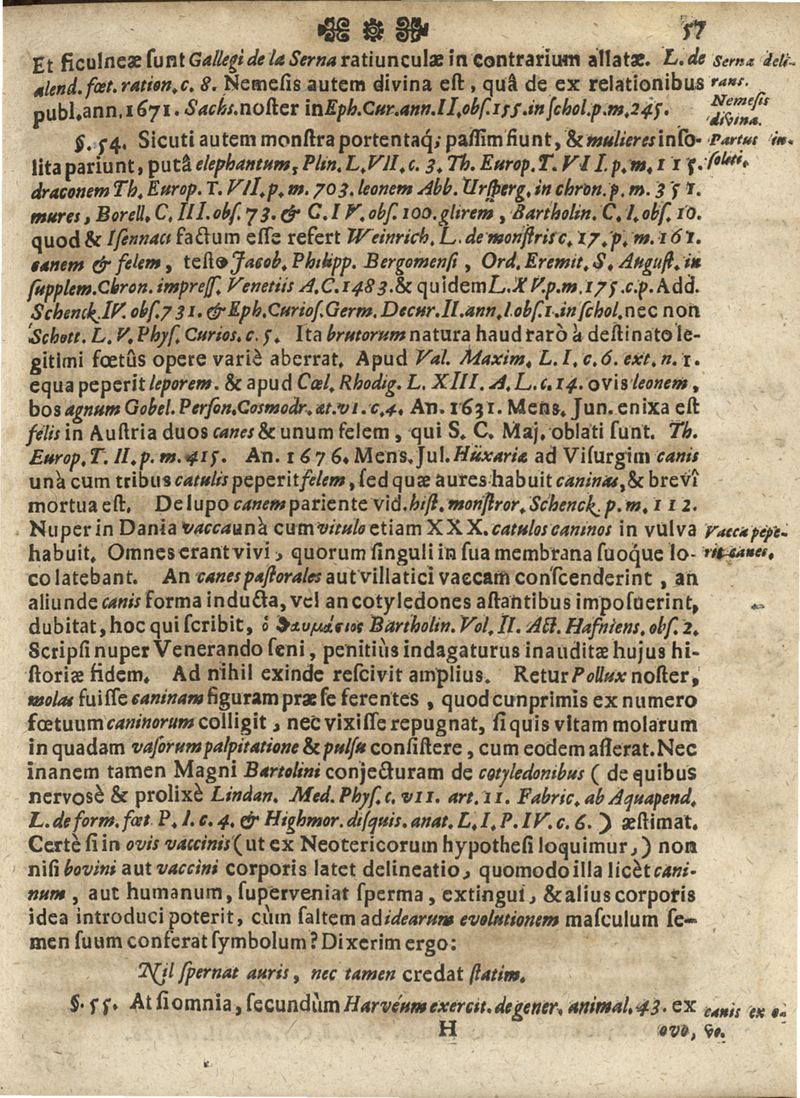 57
Et ficulneæ ſunt Gallegi de la Serna ratiunculæ in contrarium allatæ. L. de
alend. fœt. ration. c. 8. Nemeſis autem divina eſt, quâ de ex relationibus
publ. ann. 1671. Sachs. noſter in Eph. Cur. ann. II. obſ. 155. in ſchol. p. m. 245.
Serna deli-
rans.
Nemeſis
divina.
§. 54. Sicuti autem monſtra portentaq́; paſſim fiunt, & mulieres inſo-
lita pariunt, putâ elephantum, Plin. L. VII. c. 3. Th. Europ. T. VII. p. m. 115.
Partus in-
ſoliti.
draconem Th. Europ. T. VII. p. m. 703. leonem Abb. Urſperg. in chron. p. m. 351.
mures, Borell. C. III. obſ. 73. & C. IV. obſ. 100. glirem, Bartholin. C. I. obſ. 10.
quod & Iſennaci factum eſſe refert Weinrich. L. de monſtris c. 17. p. m. 161.
canem & felem, teſte Jacob. Philipp. Bergomenſi, Ord. Eremit. S. Auguſt. in
ſupplem. Chron. impreſſ. Venetiis A. C. 1483. & quidem L. XV. p. m. 175. c. p. Add.
Schenck. IV. obſ. 731. & Eph. Curioſ. Germ. Decur. II. ann. I. obſ. 1. in ſchol. nec non
Schott. L. V. Phyſ. Curios. c. 5. Ita brutorum natura haud rarò à deſtinato le-
gitimi fœtûs opere variè aberrat. Apud Val. Maxim. L. I. c. 6. ext. n. 1.
equa peperit leporem. & apud Cæl. Rhodig. L. XIII. A. L. c. 14. ovis leonem,
bos agnum Gobel. Perſon. Cosmodr. æt. vi. c. 4. An. 1631. Mens. Jun. enixa eſt
felis in Auſtria duos canes & unum felem, qui S. C. Maj. oblati ſunt. Th.
Europ. T. II. p. m. 415. An. 1676. Mens. Jul. Hüxariæ ad Viſurgim canis
unà cum tribus catulis peperit felem, ſed quæ aures habuit caninas, & brevî
mortua eſt. De lupo canem pariente vid. hiſt. monſtror. Schenck. p. m. 112.
Nuper in Dania vacca unà cum vitulo etiam XXX. catulos caninos in vulva
habuit. Omnes erant vivi, quorum ſinguli in ſua membrana ſuoque lo-
Vacca pepe-
rit canes.
co latebant. An canes paſtorales aut villatici vaccam conſcenderint, an
aliunde canis forma inducta, vel an cotyledones aſtantibus impoſuerint,
dubitat, hoc qui ſcribit, ὁ θαυμάσιος Bartholin. Vol. II. Act. Hafniens. obſ. 2.
Scripſi nuper Venerando ſeni, penitiùs indagaturus inauditæ hujus hi-
ſtoriæ fidem. Ad nihil exinde reſcivit amplius. Retur Pollux noſter,
molas fuiſſe caninam figuram præ ſe ferentes, quod cunprimis ex numero
fœtuum caninorum colligit, nec vixiſſe repugnat, ſi quis vitam molarum
in quadam vaſorum palpitatione & pulſu conſiſtere, cum eodem aſſerat. Nec
inanem tamen Magni Bartolini conjecturam de cotyledonibus (de quibus
nervosè & prolixè Lindan. Med. Phyſ. c. vii. art. 11. Fabric. ab Aquapend.
L. de form. fœt P. 1. c. 4. & Highmor. diſquis. anat. L. I. P. IV. c. 6.) æſtimat.
Certè ſi in ovis vaccinis (ut ex Neotericorum hypotheſi loquimur,) non
niſi bovini aut vaccini corporis latet delineatio, quomodo illa licèt cani-
num, aut humanum, ſuperveniat ſperma, extingui, & alius corporis
idea introduci poterit, cùm ſaltem ad idearum evolutionem maſculum ſe-
men ſuum conferat ſymbolum? Dixerim ergo:
Nil ſpernat auris, nec tamen credat ſtatim.
§. 55. At ſi omnia, ſecundùm Harvéum exercit. de gener. animal. 43. ex
canis ex o-
H
ovo, &c.